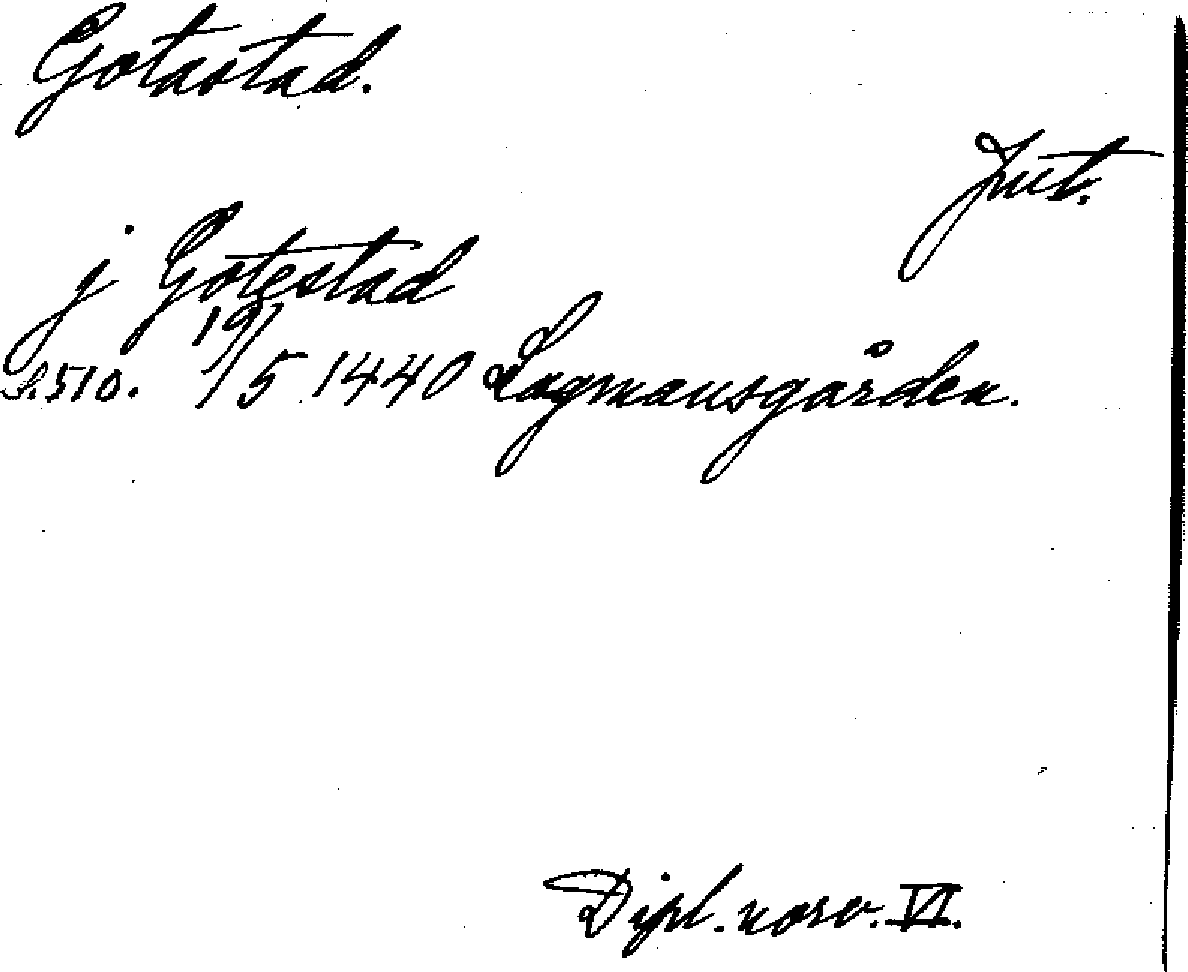 Gotastad.
Jut.
j Gotestad
S. 510. 19/5 1440 Lagmansgården.
Dipl. norv. VI.